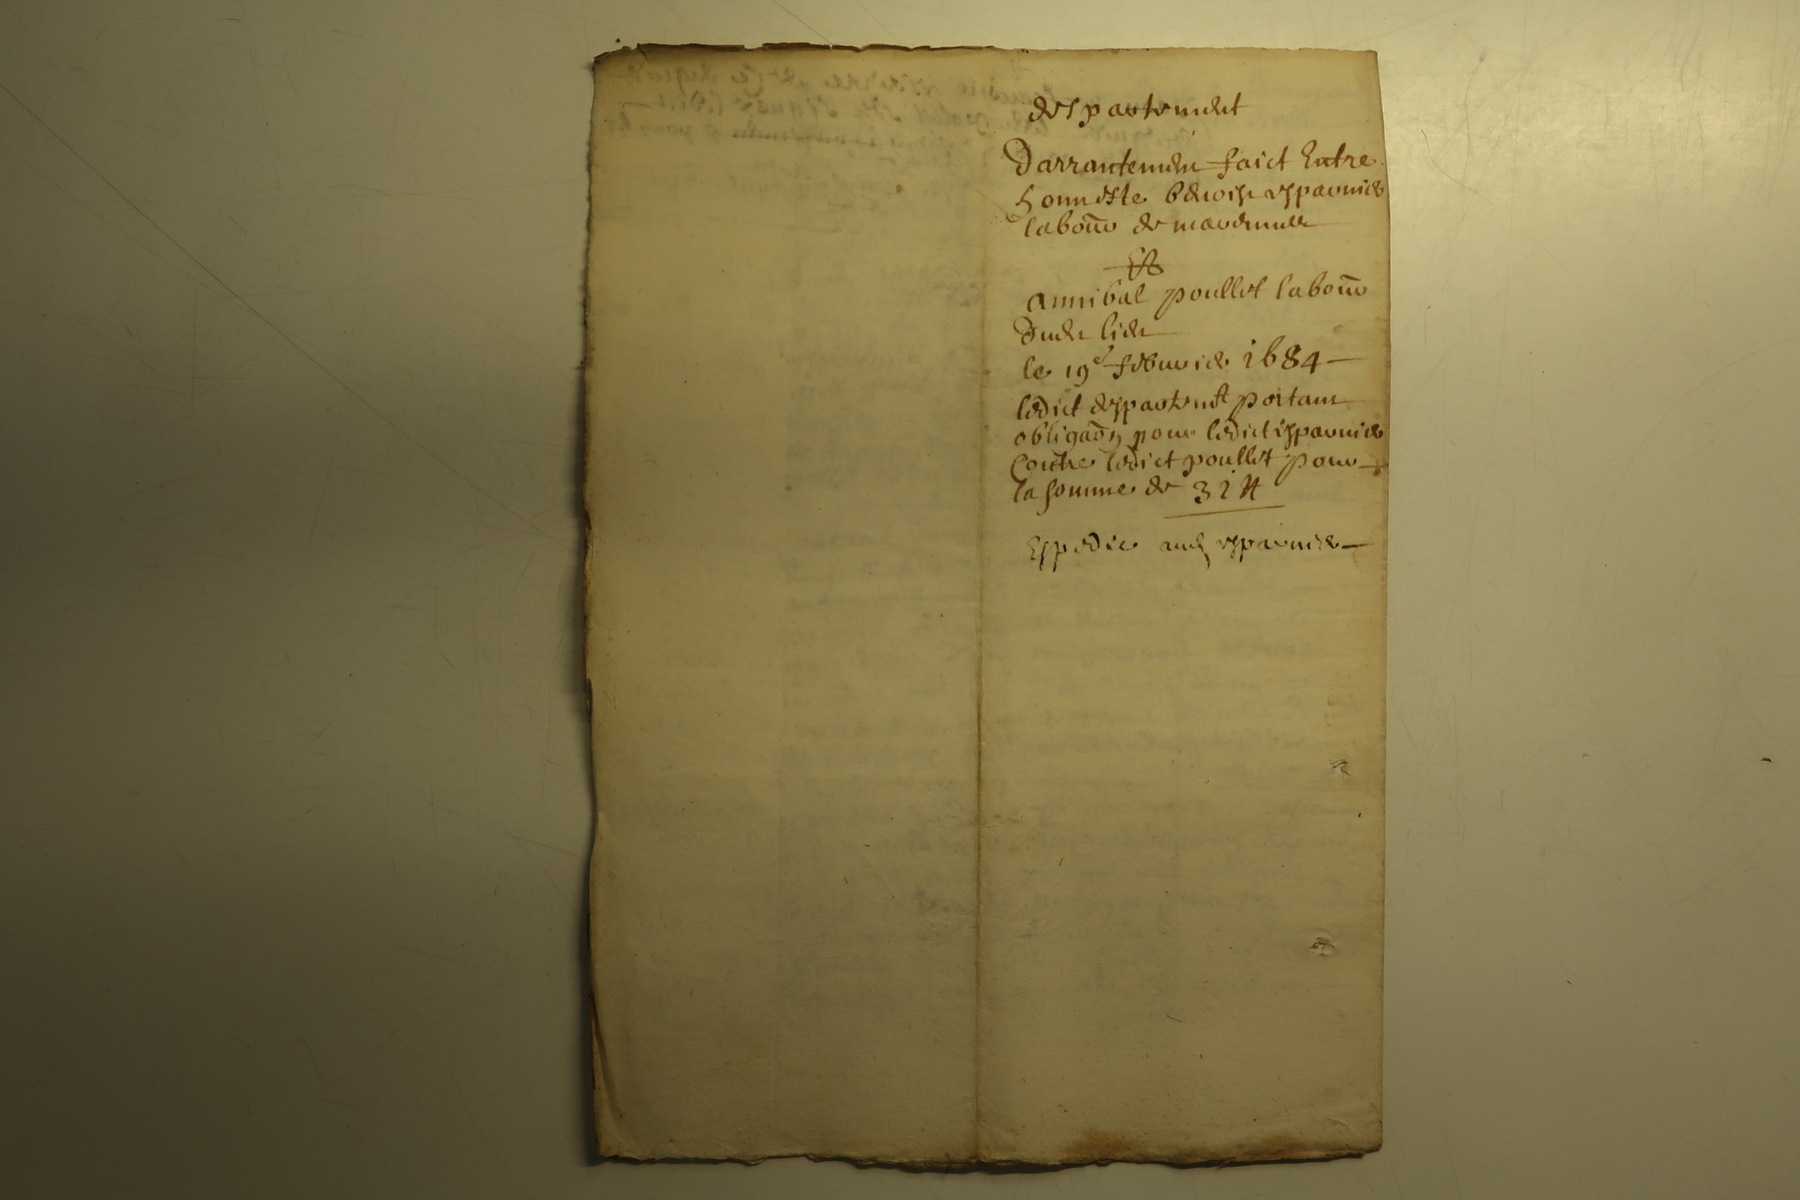 despartement
Darrantement faict Entre
honneste benoist esparvier
labour de
Et
annibal poullet labour
Dudt lieu
le 19e febvrier 1684
ledict despartemt portant
obligaon pour ledict esparvier
Contre ledict poullet pour
la somme de 31 #
Expedie audt esparvier